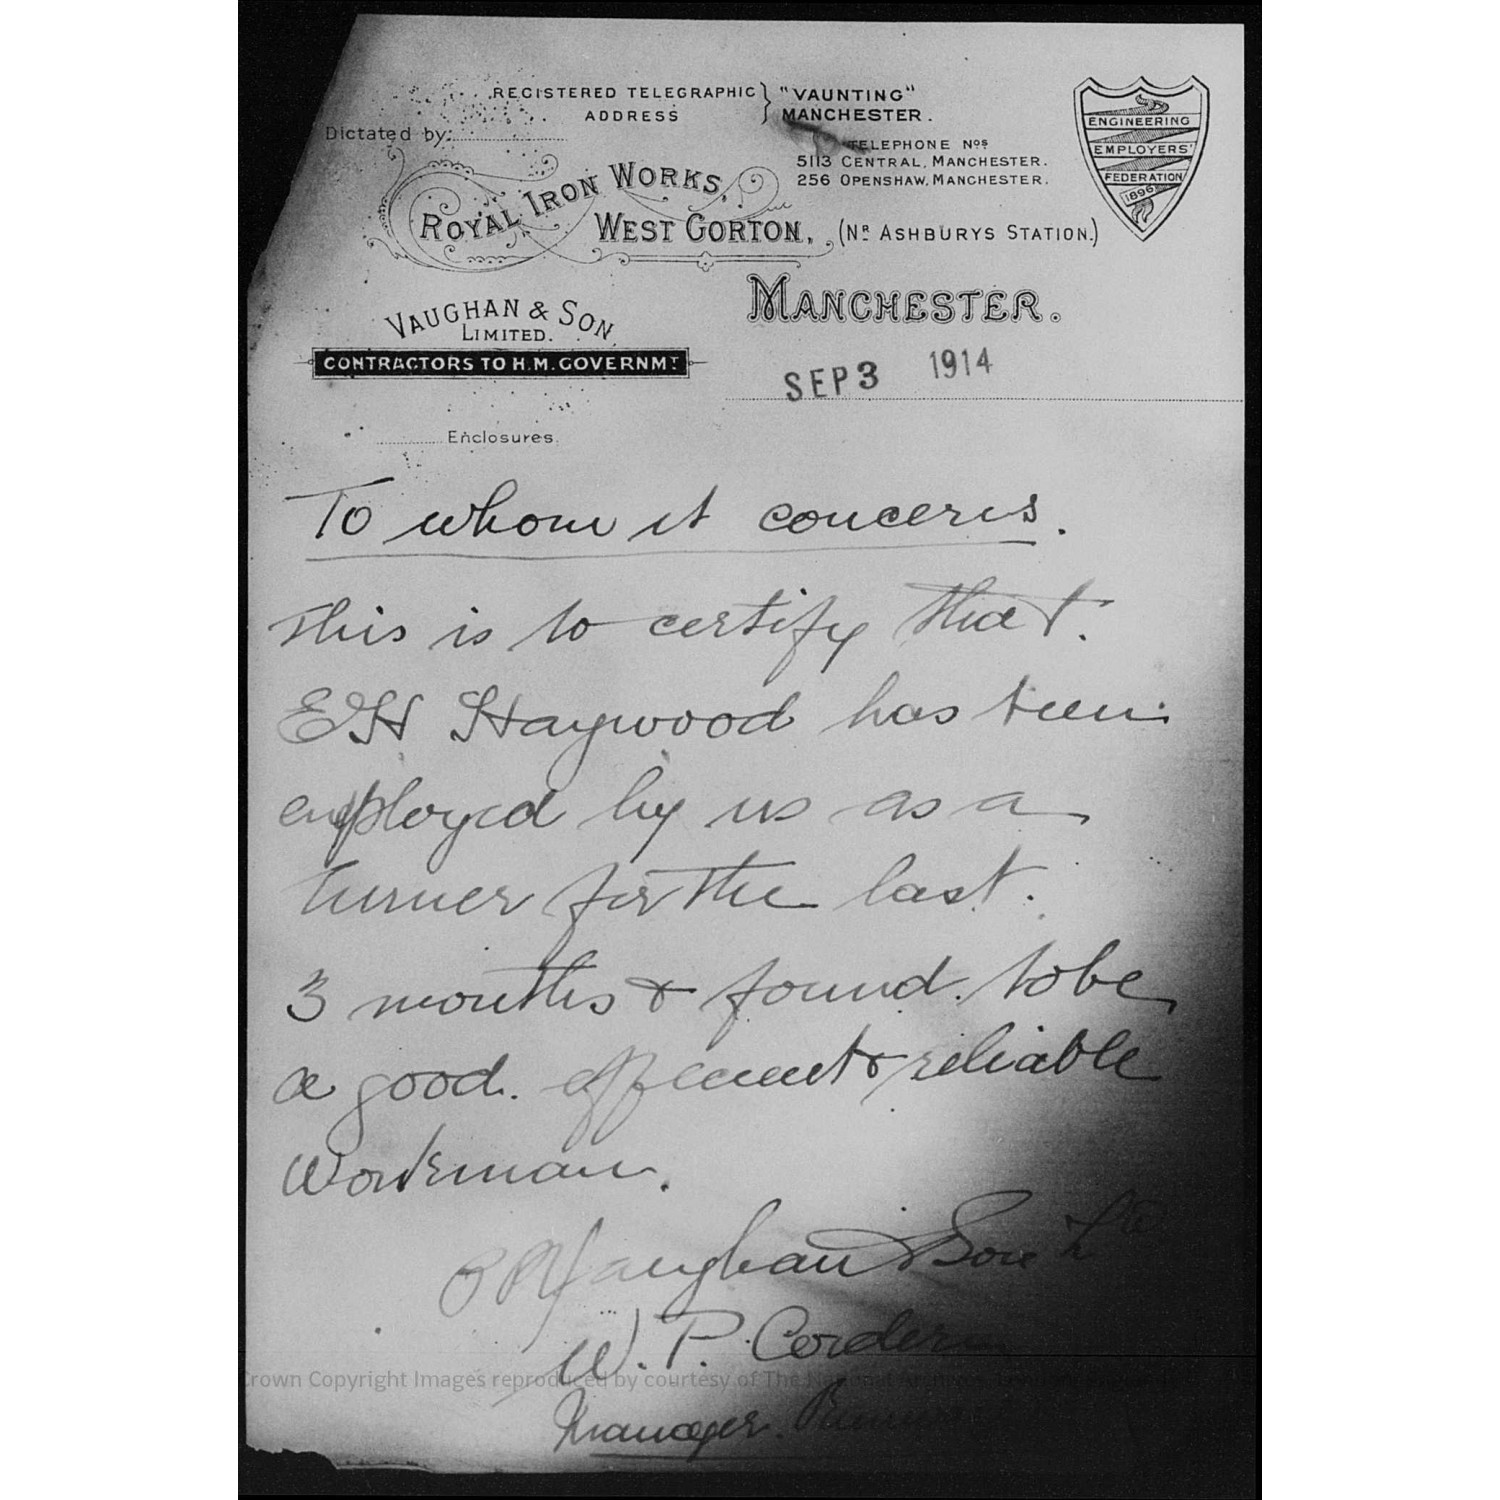 REGISTERED TELEGRAPHIC ADDRESS } "VAUNTING" MANCHESTER.
Dictated by:
TELEPHONE Nos
5113 CENTRAL, MANCHESTER.
256 OPENSHAW, MANCHESTER.
ENGINEERING
EMPLOYERS'
FEDERATION
1896
ROYAL IRON WORKS,
WEST GORTON, (NR ASHBURYS STATION.)
MANCHESTER.
VAUGHAN & SON,
LIMITED.
CONTRACTORS TO H.M. GOVERNMT
SEP 3 1914
Enclosures.
To whom it concerns.
This is to certify that
E H Haywood has been
employed by us as a
turner for the last
3 months & found to be
a good. efficient & reliable
Workman.
Vaughan & Son Ltd
W. P.
Manager.
Crown Copyright Images reproduced by courtesy of The National Archives, London, England